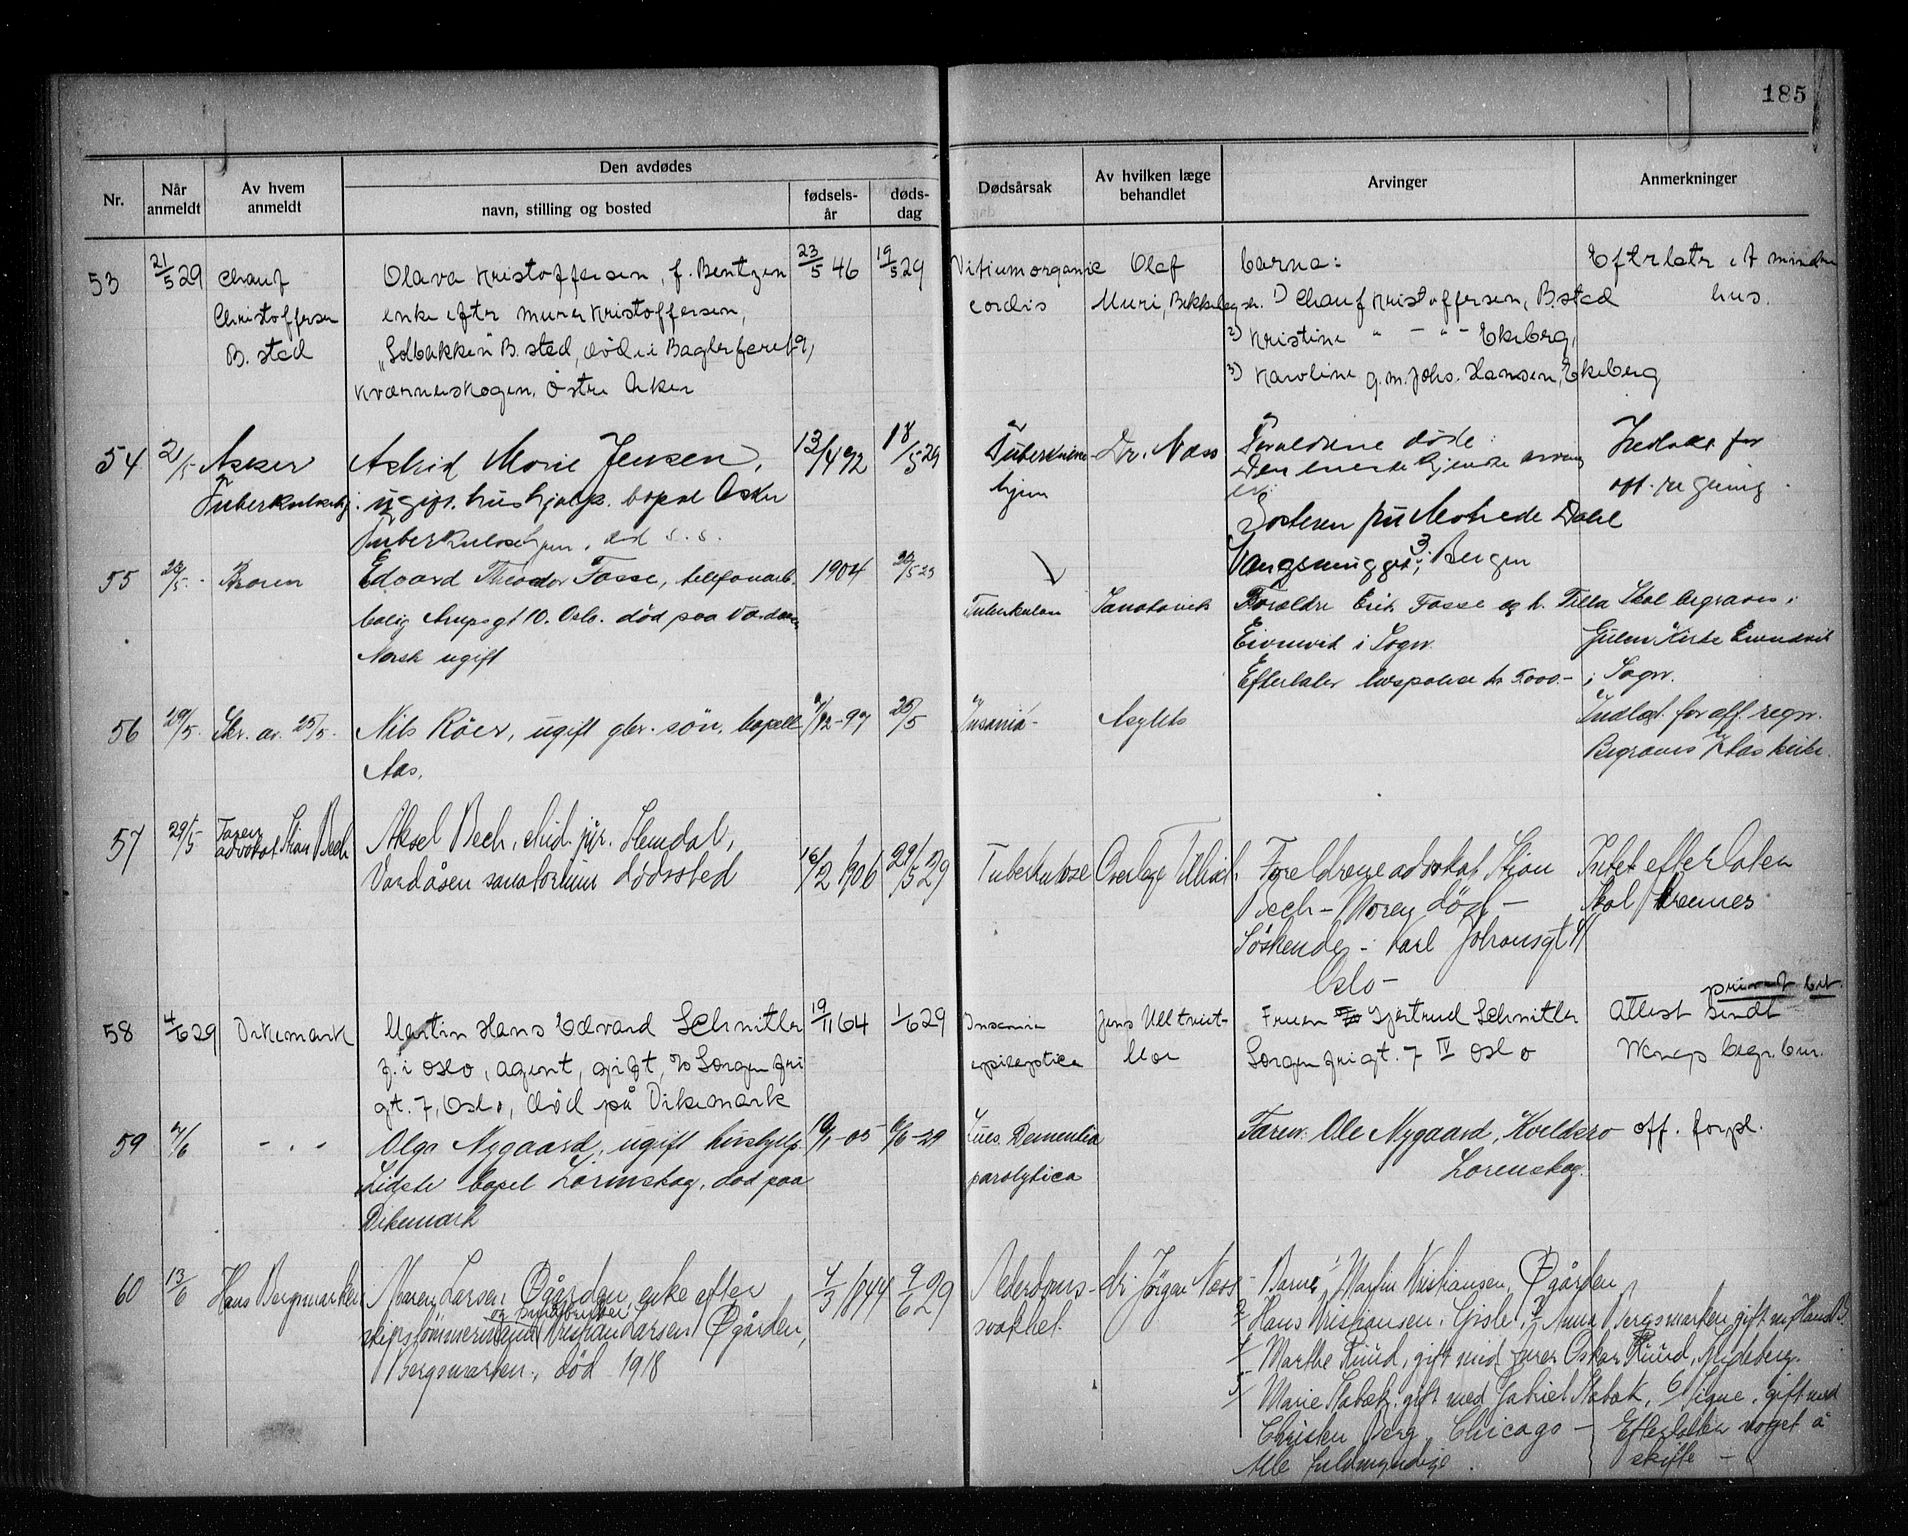 185
Nr.
Når anmeldt
Av hvem anmeldt
Den avdødes
navn, stilling og bosted
fødsels-år
døds-dag
Dødsårsak
Av hvilken læge behandlet
Arvinger
Anmerkninger
53
21/5 29
Chauf
Christoffersen
B. sted
Olava Kristoffersen, f. Bentzen
enke efter murer Kristoffersen,
„Solbakken" B. sted, död i
Kværnerskogen, Östre Aker
23/5 46
19/5 29
Vitium organic
cordis
Olaf
Muri, Bekkelagsh.
Barna:
1) Chauf Kristoffersen, B. sted
2) Kristine " - " - Ekeberg,
3) Karoline g. m. Johs. Hansen, Ekeberg
Efterlater et mindre
hus.
54
2/5
Asker
Tuberkulosehj.
Astrid Marie Jensen,
ugift. hushjelp. bopæl Asker
Tuberkulosehjem, död s. s.
13/4 92
18/5 29
Tuberkulose
Dr. Næss
Foreldrene døde:
Den eneste kjendte arving
er:
Søsteren fru Dahl
3, Bergen
Indlagt for
off. regning.
55
Broren
Edvard Theodor Fosse, telefonarb.
bolig Arupsgt 10. Oslo. død paa Vardaasen
Norsk ugift
1904
Tuberkulose
Forældre Erik Fosse og h.
Eivinvik i Sogn.
Efterlater livspolise kr 5000.-
Skal begraves i
Gulen Kirke Eivindvik
i Sogn.
56
29/5.
Skr. av. 25/5.
Nils Röer, ugift gbr. søn, bopæll
Aas.
25/5
Insania
Asylets
Indlagt for off. regn.
Begraves v/ Aas kirke.
57
29/5
Faren
advokat Stian Bech
Aksel Bech, stud. jur. Slemdal,
Vardåsen sanatorium dødssted
16/2 1906
29/5 29
Tuberkulose
Overlæge
Foreldrene advokat Stian
Bech – Moren død –
Söskende – Karl Johansgt
Oslo –
Intet efterlaten
Skal kremeres
58
4/6 29
Dikemark
Martin Hans Edvard Schnitler
f. i Oslo, agent, gift, Sorgenfri
gt. 7, Oslo, död på Dikemark
19/11 64
1/6 29
Insania
epileptica
Jens Ulltveit-
Moe
Fruen Gjertrud Schnitler
Sorgenfrigt. 7 IV Oslo
privat bet.
Attest sendt
begr. bur.
59
7/6
- " -
Olga Nygaard, ugift hushjelp.
Sidste bopel Lörenskog, död paa
Dikemark
-05
6/6 - 29
Lues. Dementia
paralytica
Faren: Ole Nygaard,
Lorenskog.
off. forpl.
60
13/6
Hans Bergsmarken
Maren Larsen Ögården, enke efter
skipstömmermand Kristian Larsen Ögården,
Bergsmarken, död 1918
4/3 1844
9/6 29
Alderdoms-
svakhet.
dr Jörgen Næss
Barna: 1/ Martin Kristiansen, Ögården
2/ Hans Kristiansen, Gisle, 3/ Anna Bergsmarken, gift m/ Hans B.
4/ Marthe Ruud, gift med Oskar Ruud,
5/ Marie Stabæk, gift med Gabriel Stabæk, 6/ Signe, gift med
Christen Berg, Chicago –
Alle fuldmyndige.
Efterlater noget å
skifte –